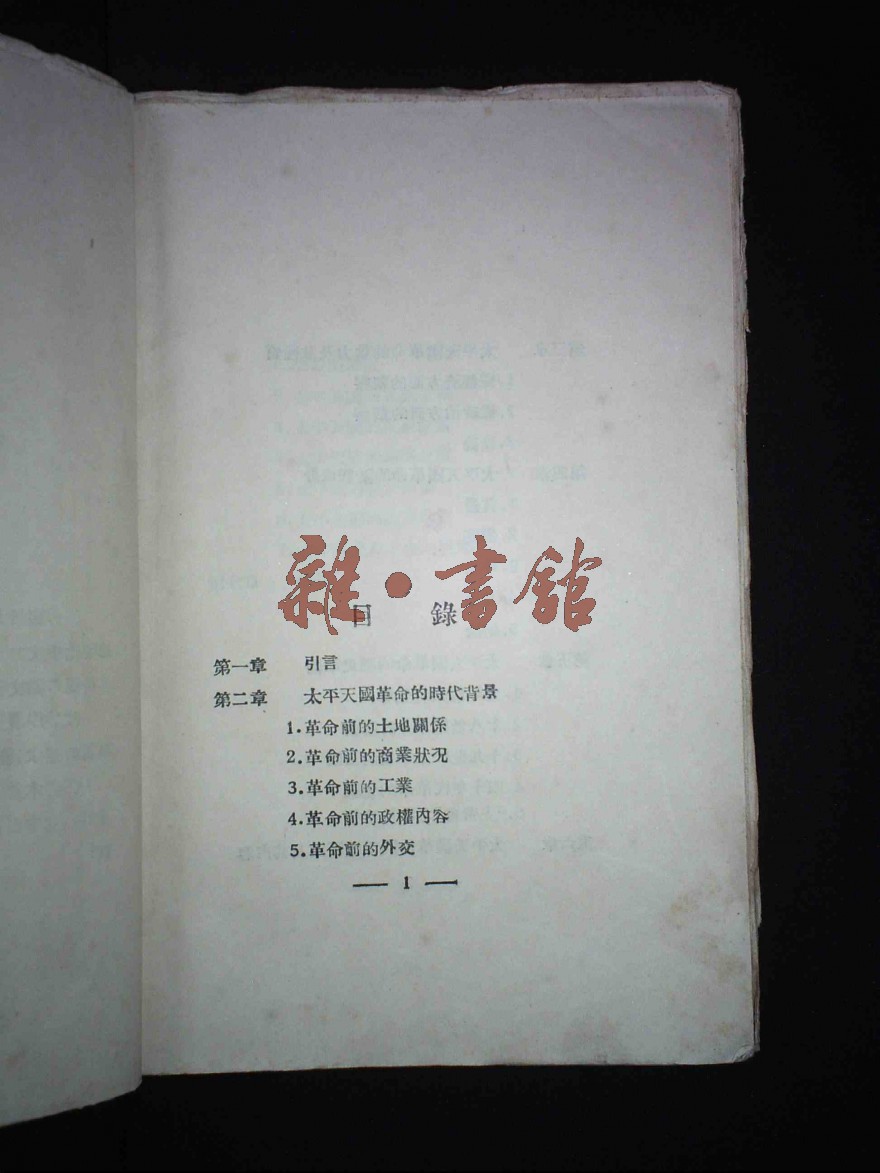 雜·書館
目錄
第一章 引言
第二章 太平天國革命的時代背景
1.革命前的土地關係
2.革命前的商業狀况
3.革命前的工業
4.革命前的政權內容
5.革命前的外交
— 1 —